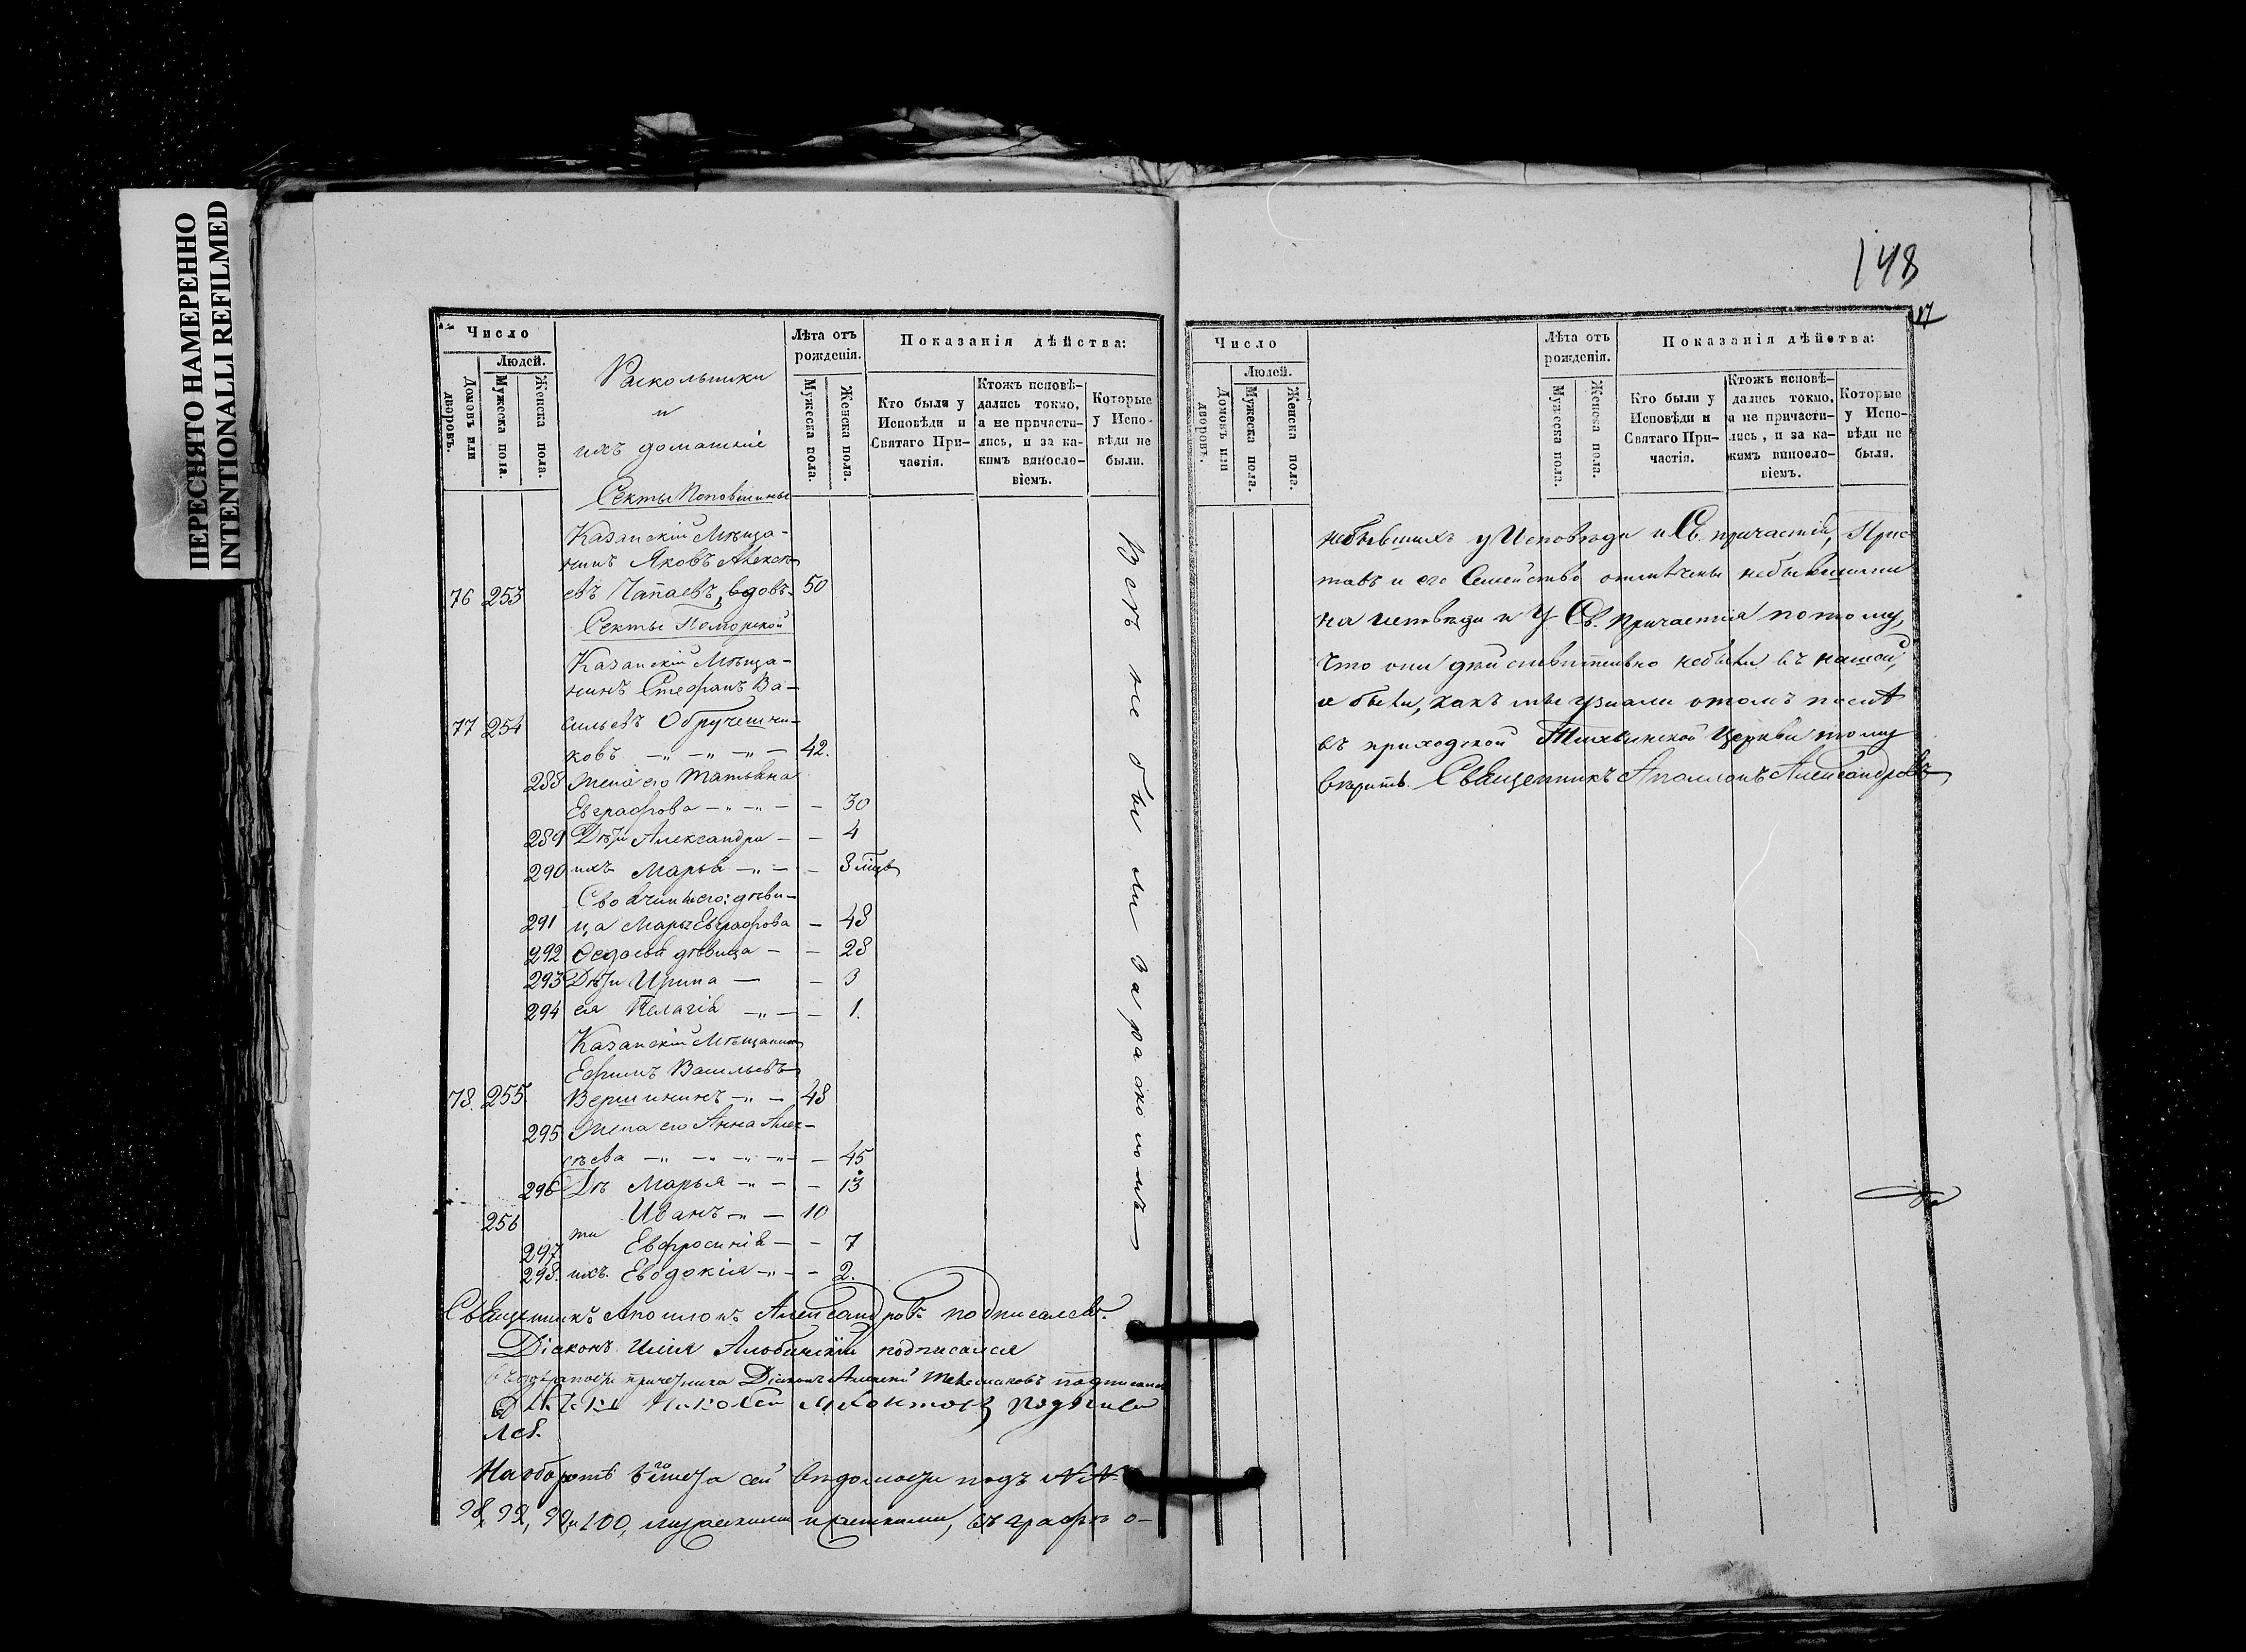 ПЕРЕСНЯТО НАМЕРЕННО
INTENTIONALLI REFILMED
148
17
Число
Людей.
Домовъ или дворовъ.
Мужеска пола.
Женска пола.
Раскольники
и
ихъ домашніе
Лѣта отъ рожденія.
Мужеска пола.
Женска пола.
Показанія дѣйства:
Кто были у Исповѣди и Святаго Причастія.
Ктожъ исповѣдались токмо, а не причастились, и за какимъ винословіемъ.
Которые у Исповѣди не были.
Секты Поповщины
Казанскій Мѣща-
нинъ Яковъ Алексѣ-
76 253 евъ Чапаевъ, вдовъ 50
Секты Поморской
Казанскій Мѣща-
нинъ Стефанъ Ва-
77 254 сильевъ Обручешни-
ковъ — „ — „ — „ — 42.
288 Жена его Татьяна
Евграфова — „ — „ — — 30
289 Дѣти Александра — — 4
290 ихъ Марья — „ — — 8 мѣс
его: дѣви-
291 ца Марья Евграфова — 48
292 Федосья дѣвица — — 28
293 Дѣти Ирина — — 3
294 ея Пелагія — „ — — 1.
Казанскій Мѣщанинъ
Ефимъ Васильевъ
78. 255 Вершининъ — „ — 48
295 Жена его Анна Алек-
сѣева — „ — „ — „ — — 45
296 Дѣ Марья — „ — — 13
256 Иванъ — „ — 10
297 ти Евфросинія — — 7
298. ихъ. Евдокія — „ — — 2.
Всѣ не были за расколомъ
Священникъ Аполлонъ Александровъ подписался.
Діаконъ Илія подписался
причетника Діаконъ Алексій подписался
Николай подписа
лся.
На оборотѣ 6го листа сей вѣдомости подъ №№
98, 99, и 100, мужескими и женскими, въ графѣ о-
Число
Людей.
Домовъ или дворовъ.
Мужеска пола.
Женска пола.
Лѣта отъ рожденія.
Мужеска пола.
Женска пола.
Показанія дѣйства:
Кто были у Исповѣди и Святаго Причастія.
Ктожъ исповѣдались токмо, а не причастились, и за какимъ винословіемъ.
Которые у Исповѣди не были.
небывшихъ у Исповѣди и Св. причастія, Прис
тавъ и его Семейство отмѣчены небывшими
на исповѣди и у Св. Причастія потому,
что они дѣйствительно небыли въ нашей,
а были, какъ мы узнали о томъ послѣ
въ приходской Тихвинской Церкви тому
вѣрить. Священникъ Аполлонъ Александровъ